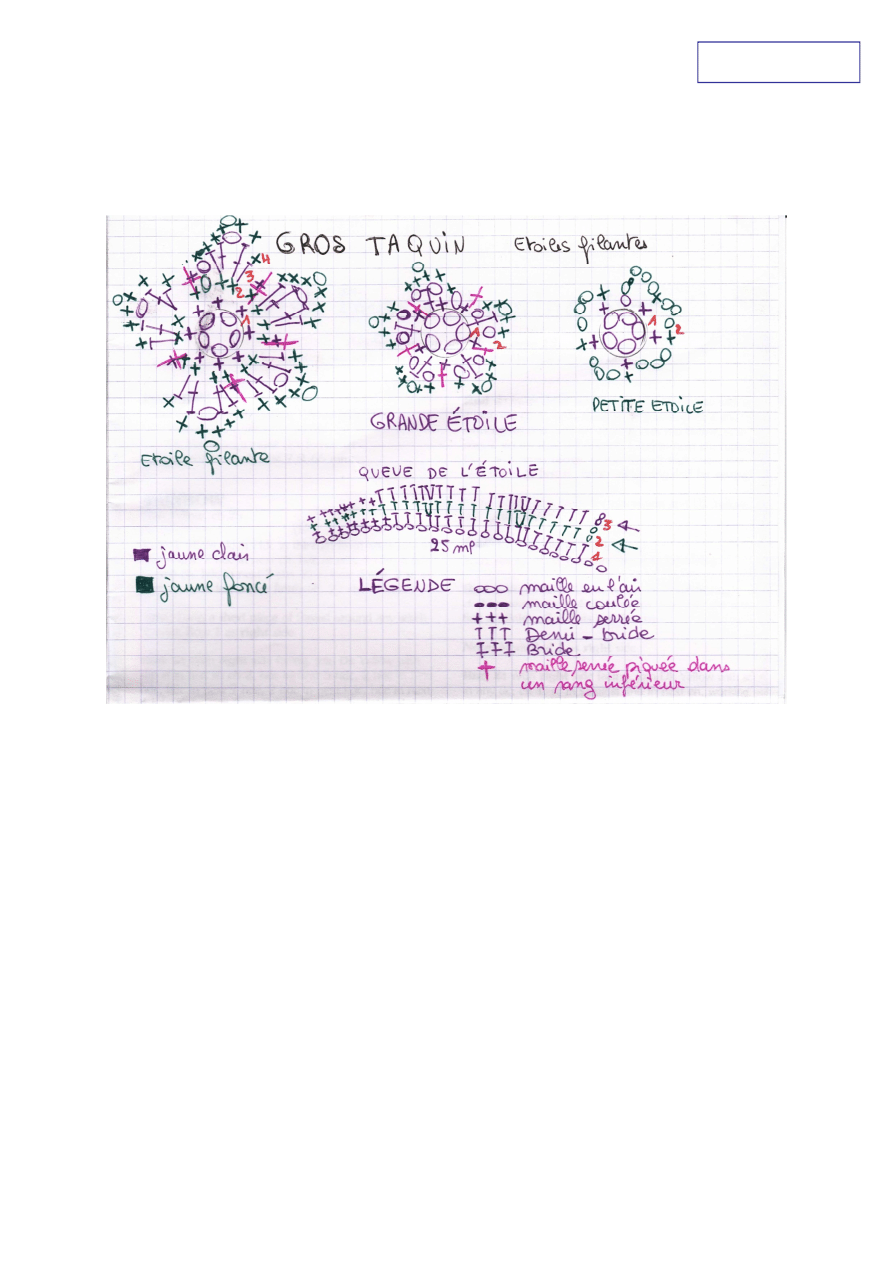 GROS TAQUIN Etoiles filantes
4
3
2
1
1
2
1
2
PETITE ETOILE
GRANDE ÉTOILE
Etoile filante
QUEUE DE L'ÉTOILE
3
2
1
25 mp
jaune clair
jaune foncé
LÉGENDE
maille en l'air
maille coulée
maille serrée
Demi-bride
Bride
maille serrée piquée dans
un rang inférieur